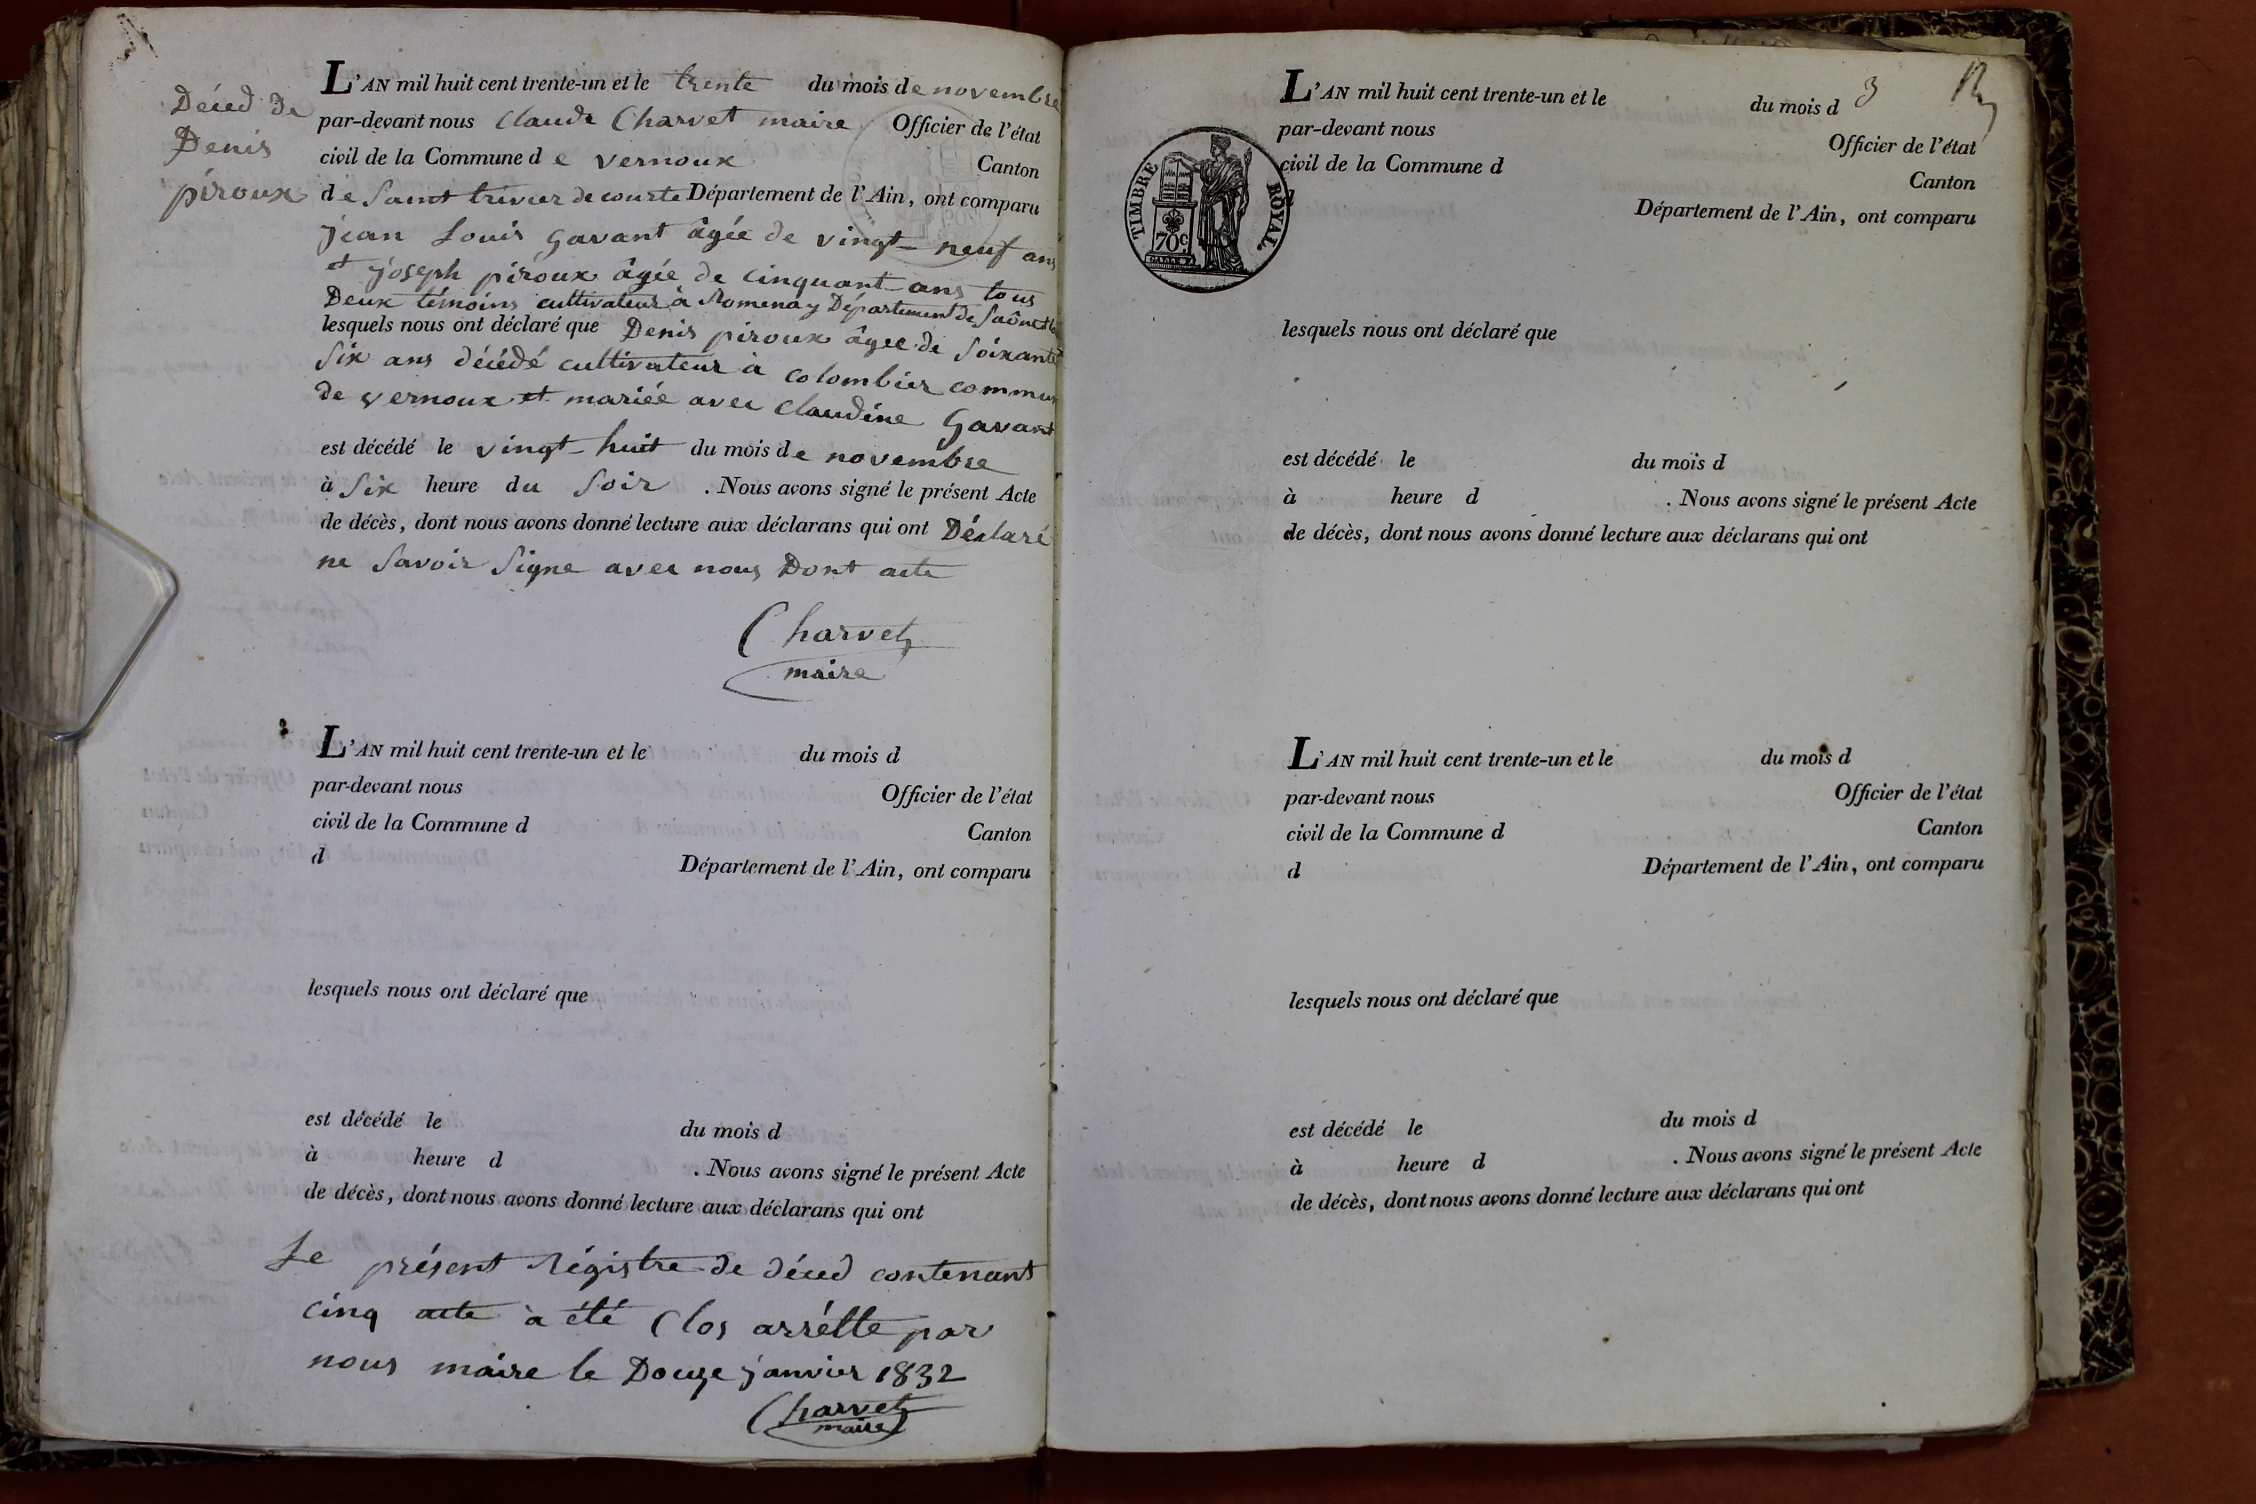 Décéd de
Denis
piroux
L'AN mil huit cent trente-un et le trente du mois de novembre
par-devant nous Claude Charvet maire Officier de l'état
civil de la Commune de vernoux Canton
de Saint trivier de courte Département de l'Ain, ont comparu
jean Louis Gavant âgée de vingt-neuf ans
et joseph piroux âgée de cinquant ans tous
Deux témoins cultivateur à Romenay Département de Saône et
lesquels nous ont déclaré que Denis piroux âgee de soixante
six ans décédé cultivateur à colombier commun
de vernoux et mariée avec claudine Gavant
est décédé le vingt-huit du mois de novembre
à Six heure du Soir . Nous avons signé le présent Acte
de décès, dont nous avons donné lecture aux déclarans qui ont Déclaré
ne Savoir Signe avec nous Dont acte
Charvet
maire
L'AN mil huit cent trente-un et le du mois d
par-devant nous Officier de l'état
civil de la Commune d Canton
d Département de l'Ain, ont comparu
lesquels nous ont déclaré que
est décédé le du mois d
à heure d . Nous avons signé le présent Acte
de décès, dont nous avons donné lecture aux déclarans qui ont
Le présent Régistre de décéd contenant
cinq acte à été Clos arrétte par
nous maire le Douze janvier 1832
Charvet
maire
3
L'AN mil huit cent trente-un et le du mois d
par-devant nous Officier de l'état
civil de la Commune d Canton
Département de l'Ain, ont comparu
TIMBRE ROYAL.
70c
lesquels nous ont déclaré que
est décédé le du mois d
à heure d . Nous avons signé le présent Acte
de décès, dont nous avons donné lecture aux déclarans qui ont
L'AN mil huit cent trente-un et le du mois d
par-devant nous Officier de l'état
civil de la Commune d Canton
d Département de l'Ain, ont comparu
lesquels nous ont déclaré que
est décédé le du mois d
à heure d . Nous avons signé le présent Acte
de décès, dont nous avons donné lecture aux déclarans qui ont